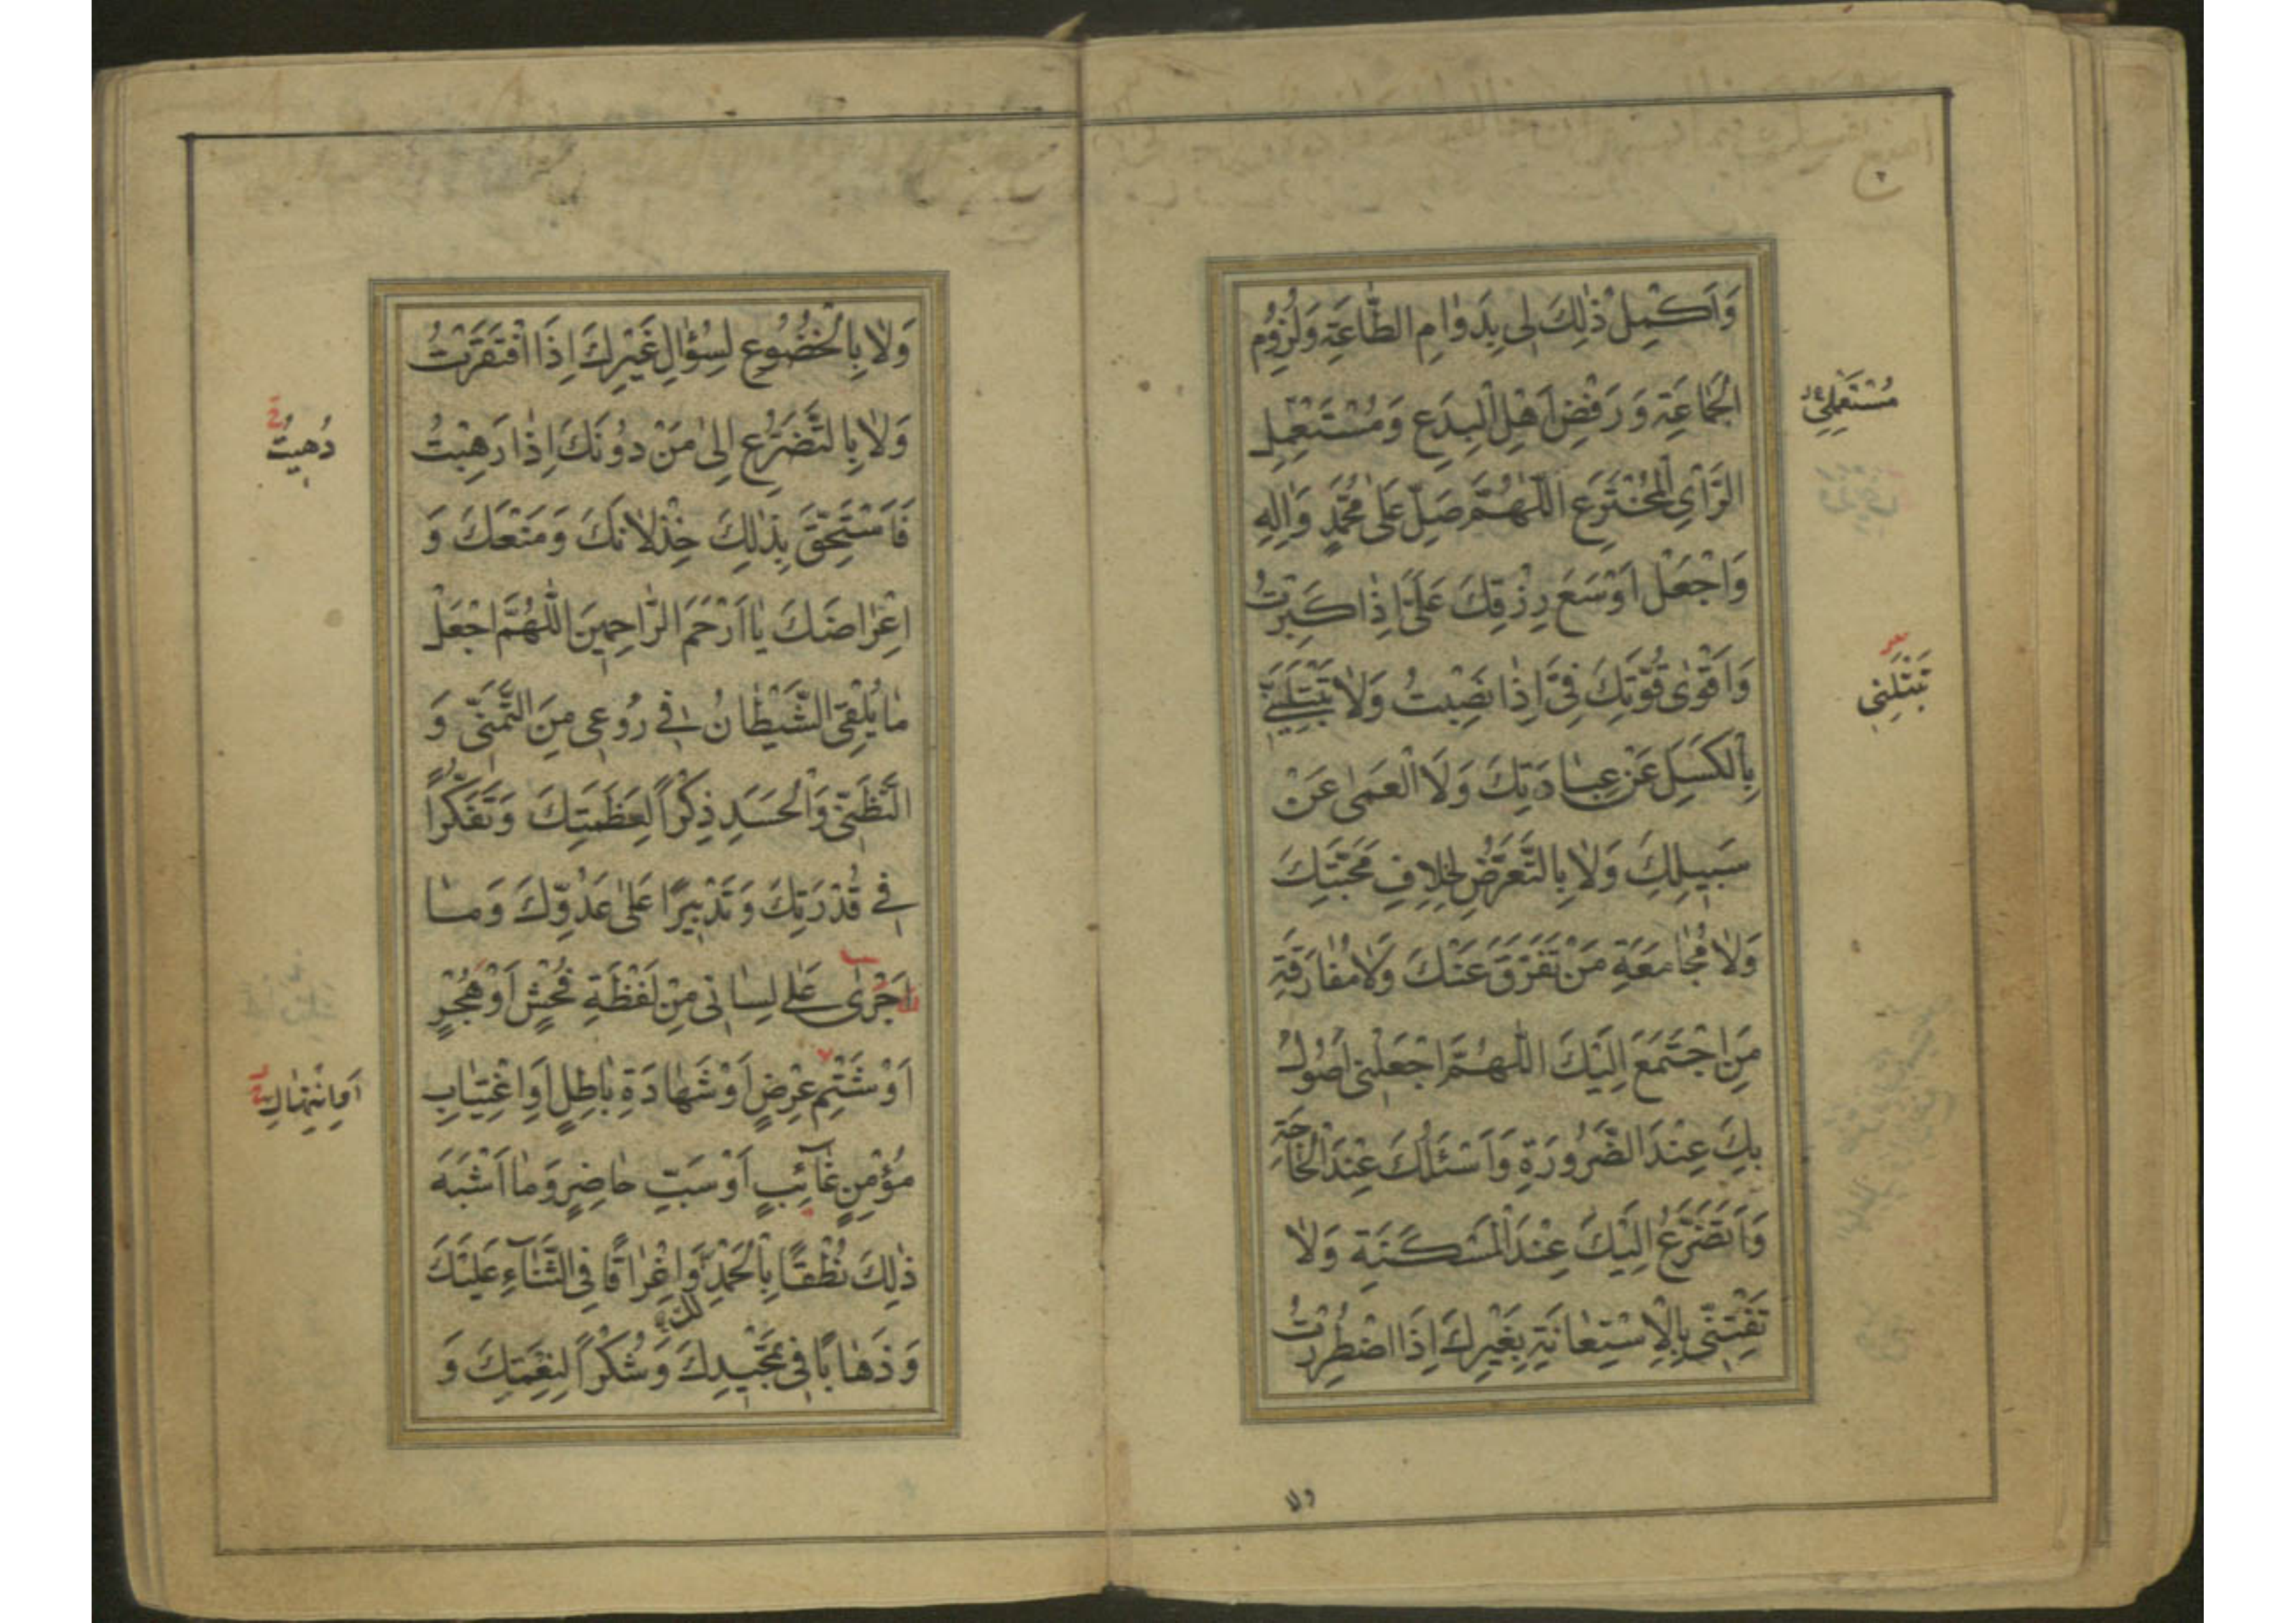 وَاَكْمِلْ ذٰلِكَ لى بِدَوٰامِ الطّٰاعَةِ وَلُزُومِ
الْجَمٰاعَةِ وَرَفْضِ اَهْلِ الْبِدَعِ وَمُسْتَعْمِلِ
مُسْتَعْمِلِي
الرَّاْىِ الْمُخْتَرَعِ اَللّٰهُمَّ صَلِّ عَلىٰ مُحَمَّدٍ وَاٰلِهِ
وَاجْعَلْ اَوْسَعَ رِزْقِكَ عَلَىَّ اِذٰا كَبِرْتُ
وَاَقْوىٰ قُوَّتِكَ فِىَّ اِذٰا نَصِبْتُ وَلاٰ تَبْتَلِيَنّى
تَبْتَلِنِى
بِالْكَسَلِ عَنْ عِبٰادَتِكَ وَلَا الْعَمىٰ عَنْ
سَبيلِكَ وَلاٰ بِالتَّعَرُّضِ لِخِلاٰفِ مَحَبَّتِكَ
وَلاٰ مُجٰامَعَةِ مَنْ تَفَرَّقَ عَنْكَ وَلاٰ مُفٰارَقَةِ
مَنِ اجْتَمَعَ اِلَيْكَ اَللّٰهُمَّ اجْعَلْنى اَصُولُ
بِكَ عِنْدَ الضَّرُورَةِ وَاَسْئَلُكَ عِنْدَ الْحٰاجَةِ
وَاَتَضَرَّعُ اِلَيْكَ عِنْدَ الْمَسْكَنَةِ وَلاٰ
تَفْتِنّى بِالْاِسْتِعٰانَةِ بِغَيْرِكَ اِذَا اضْطُرِرْتُ
ولا
وَلاٰ بِالْخُضُوعِ لِسُؤٰالِ غَيْرِكَ اِذَا افْتَقَرْتُ
وَلاٰ بِالتَّضَرُّعِ اِلىٰ مَنْ دُونَكَ اِذٰا رَهِبْتُ
دُهيتُ
فَاَسْتَحِقَّ بِذٰلِكَ خِذْلاٰنَكَ وَمَنْعَكَ وَ
اِعْرٰاضَكَ يٰا اَرْحَمَ الرّٰاحِمينَ اَللّٰهُمَّ اجْعَلْ
مٰا يُلْقِى الشَّيْطٰانُ فى رُوعى مِنَ التَّمَنّى وَ
التَّظَنّى وَالْحَسَدِ ذِكْرًا لِعَظَمَتِكَ وَتَفَكُّرًا
فى قُدْرَتِكَ وَتَدْبيرًا عَلىٰ عَدُوِّكَ وَمٰا
اَجْرىٰ عَلىٰ لِسٰانى مِنْ لَفْظَةِ فُحْشٍ اَوْ هُجْرٍ
اَوْ شَتْمِ عِرْضٍ اَوْ شَهٰادَةِ بٰاطِلٍ اَوِ اغْتِيٰابِ
مُؤْمِنٍ غٰائِبٍ اَوْ سَبِّ حٰاضِرٍ وَمٰا اَشْبَهَ
ذٰلِكَ نُطْقًا بِالْحَمْدِ لَكَ وَاِغْرٰاقًا فِى الثَّنٰاءِ عَلَيْكَ
وَذَهٰابًا فى تَمْجيدِكَ وَشُكْرًا لِنِعْمَتِكَ وَ